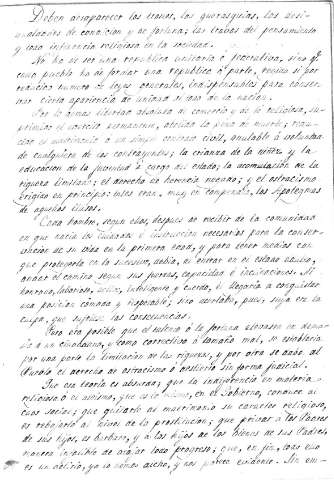 Deben desaparecer los tronos, las gerarquías, las desi-
gualdades de condicion y de fortuna; las trabas del pensamiento
y toda influencia religiosa en la sociedad.
No ha de ser una república unitaria ó federativa, sino que
cada pueblo ha de formar una república á parte, regida si por
número de leyes generales, indispensables para conser-
var cierta apariencia de unidad si no de la nacion.
Por lo demas libertad absoluta de comercio y de religiosa, su-
primido el ejército permanente, abolida la pena de muerte; redu-
cido el matrimonio á un simple contrato civil, anulable á voluntad
de cualquiera de los contrayentes; la crianza de la niñez y la
educacion de la juventud á cargo del estado; la acumulacion de la
riqueza limitada; el derecho de herencia negado; y el ostracismo
erigido en principio: tales eran, muy en compendio, los Apotegmas
de aquellos ilusos.
Cada hombre, segun ellos, despues de recibir de la comunidad
en que nacia los cuidados é instruccion necesarios para la conser-
vacion de su vida en la primera edad, y para tener medios con
que protegerla en lo sucesivo, debia, al entrar en el estado adulto,
andar el camino segun sus fuerzas, capacidad é inclinaciones. Si
honrado, laborioso, activo, inteligente y cuerdo, él llegaria á conquistar
una posicion cómoda y respetable; sino acertaba, pues, suya era la
culpa, que sufriese las consecuencias.
Pero era posible que el talento ó la fortuna elevasen en dema-
sía á un ciudadano, y como correctivo á tamaño mal, se establecia
por una parte la limitacion de las riquezas, y por otra se daba al
Pueblo el derecho de ostracismo ó destierro sin forma judicial.
Que esa teoría es absurda; que la indiferencia en materia
religiosa ó el ateismo, que es lo mismo, en el Gobierno, conduce al
caos social; que quitarle al matrimonio su carácter religioso,
es rebajarlo al nivel de la prostitucion; que privar á los Padres
de sus hijos, es bárbaro, y á los hijos de los bienes de sus Padres,
manera infalible de atajar todo progreso; que, en fin, todo ello
es un delirio, ya lo hemos dicho, y nos parece evidente. Sin em-